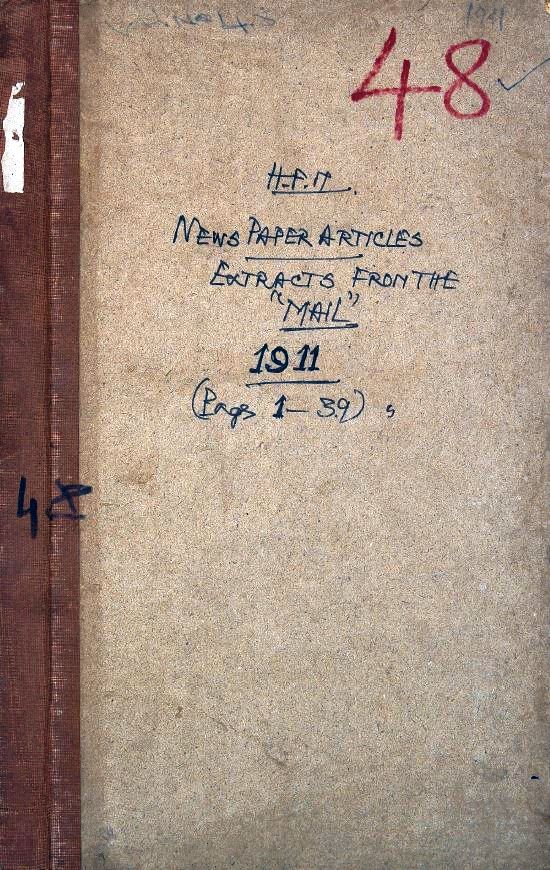 Vol. No 48
1911
48
H.F.M.
NEWS PAPER ARTICLES
EXTRACTS FROM THE
"MAIL"
1911
(Pages 1–39)
48